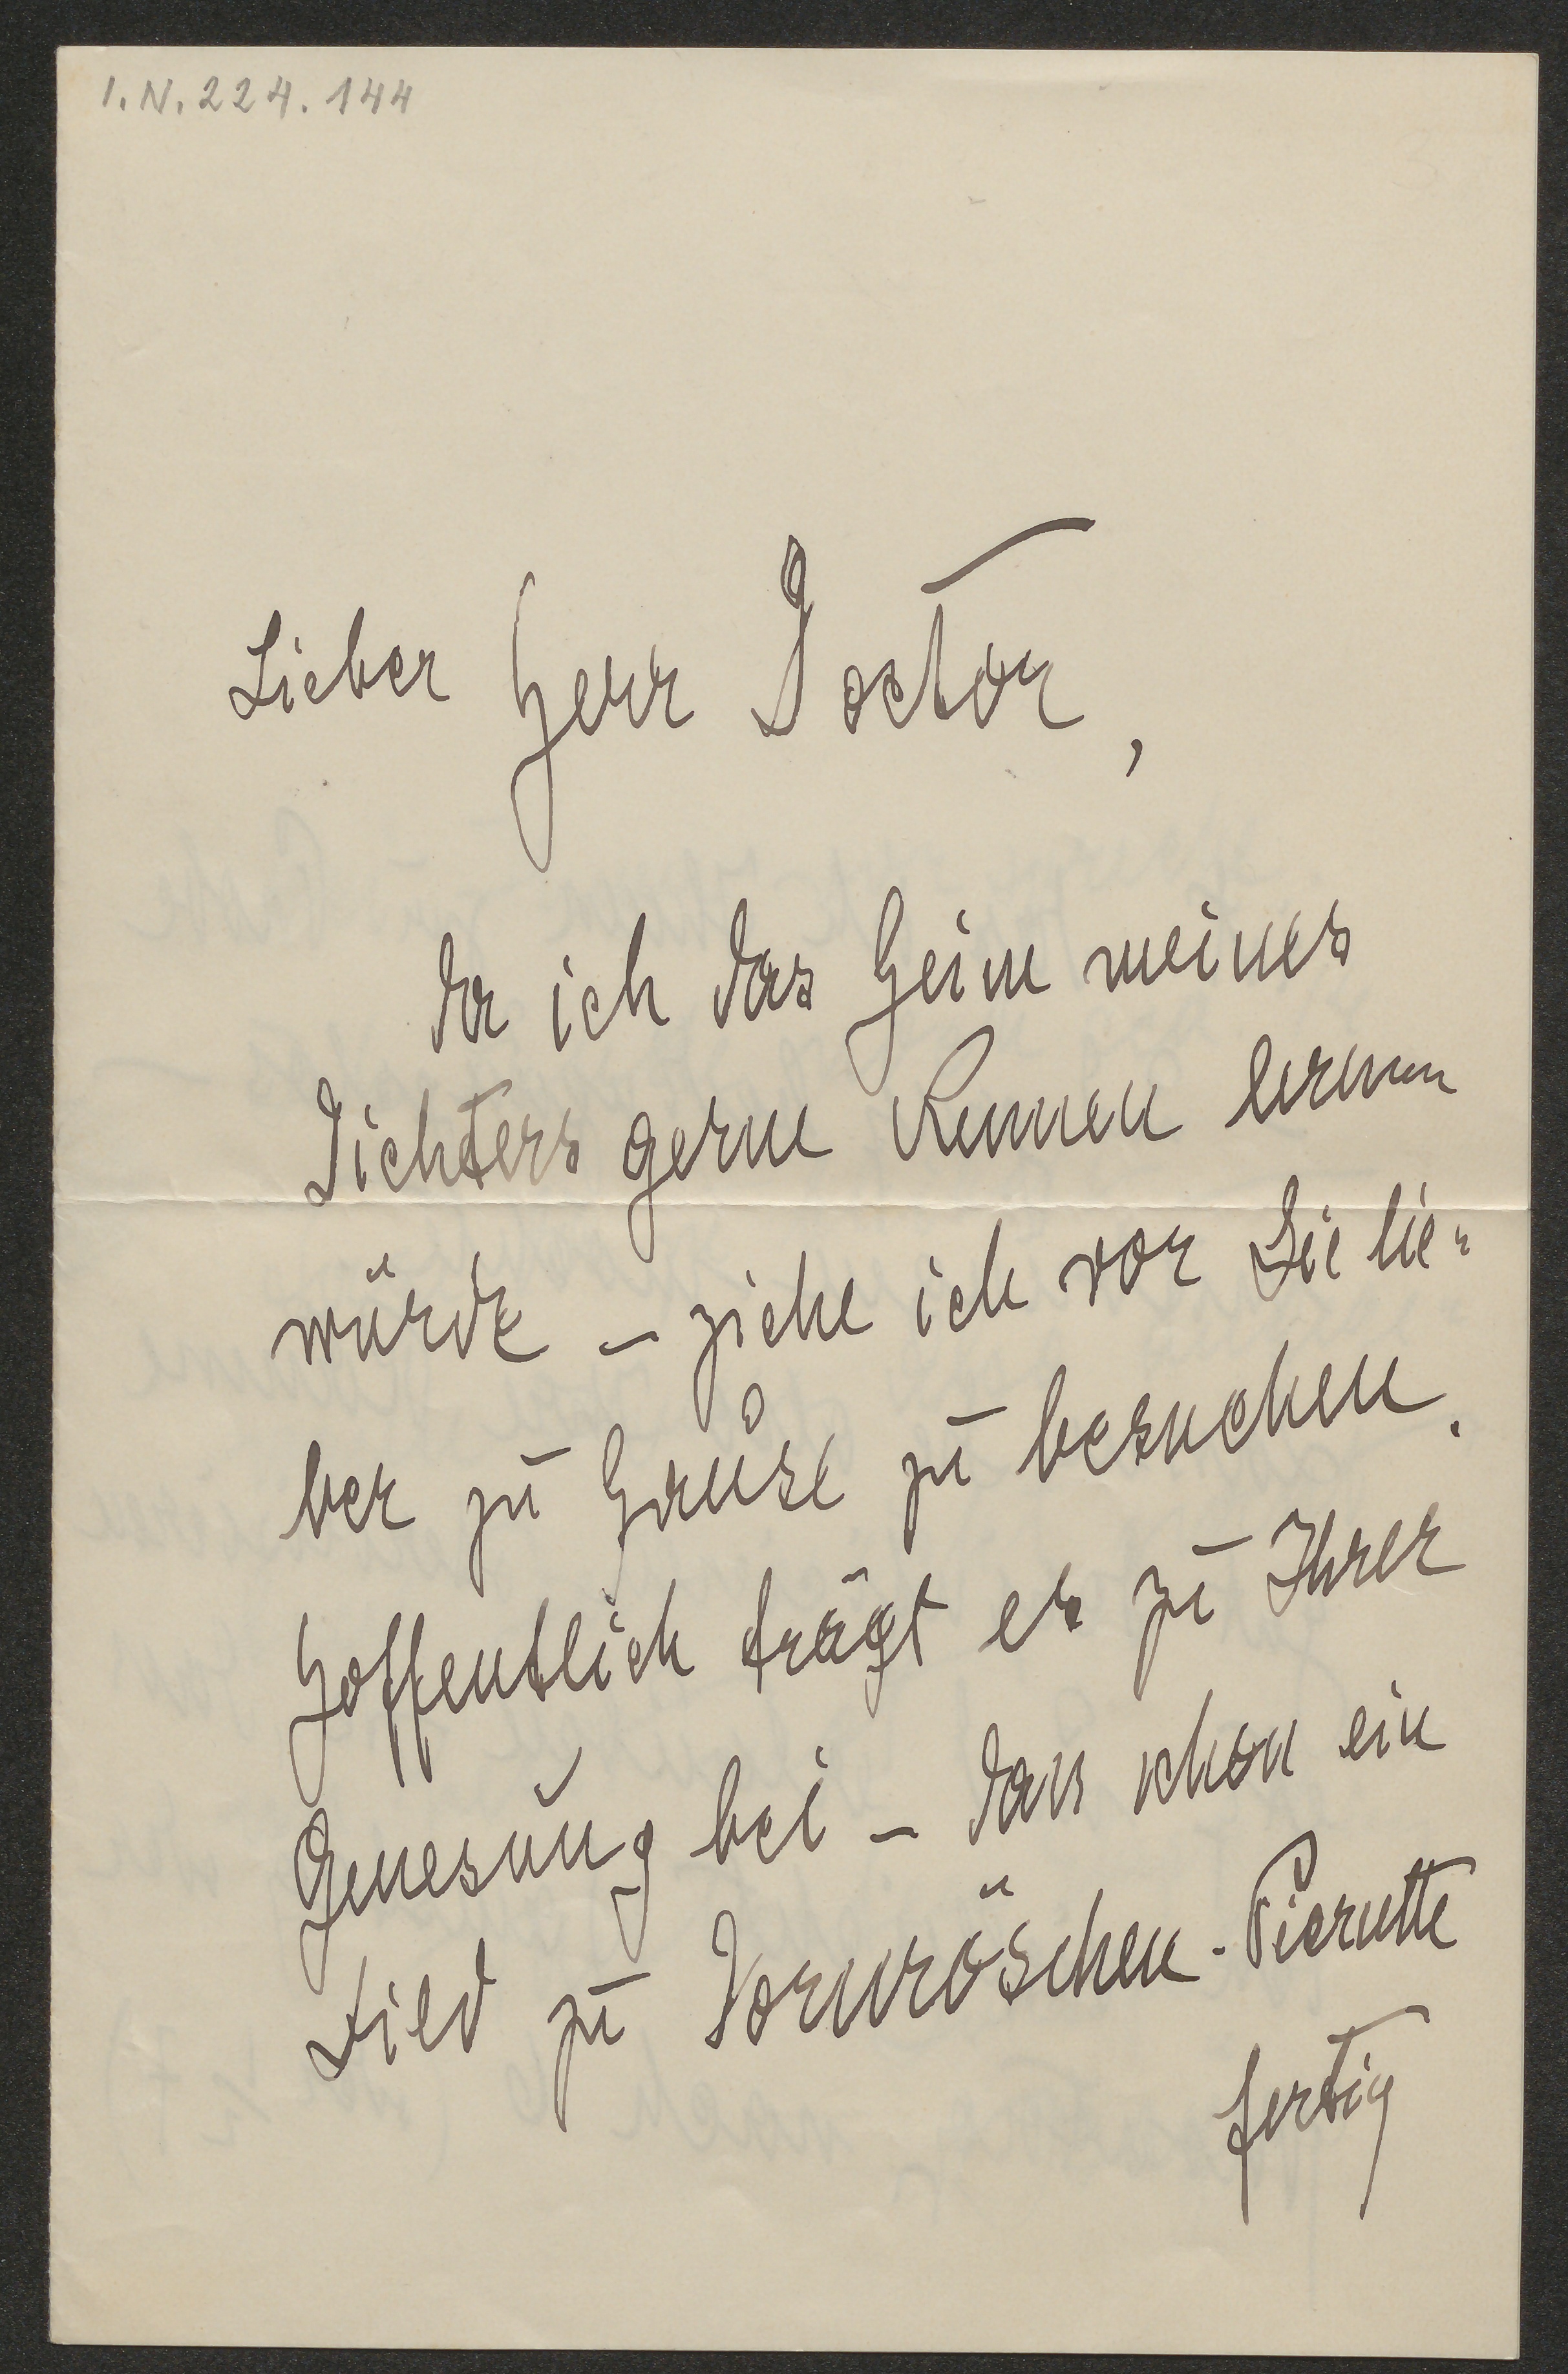 I.N. 224.144
Lieber Herr Doctor,
da ich das Heim meines
Dichters gerne kennen lernen
würde – ziehe ich vor Sie lie-
ber zu Hause zu besuchen.
Hoffentlich trägt es zu Ihrer
Genesung bei – dass schon ein
Lied zu Dornröschen-Pierutte
fertig